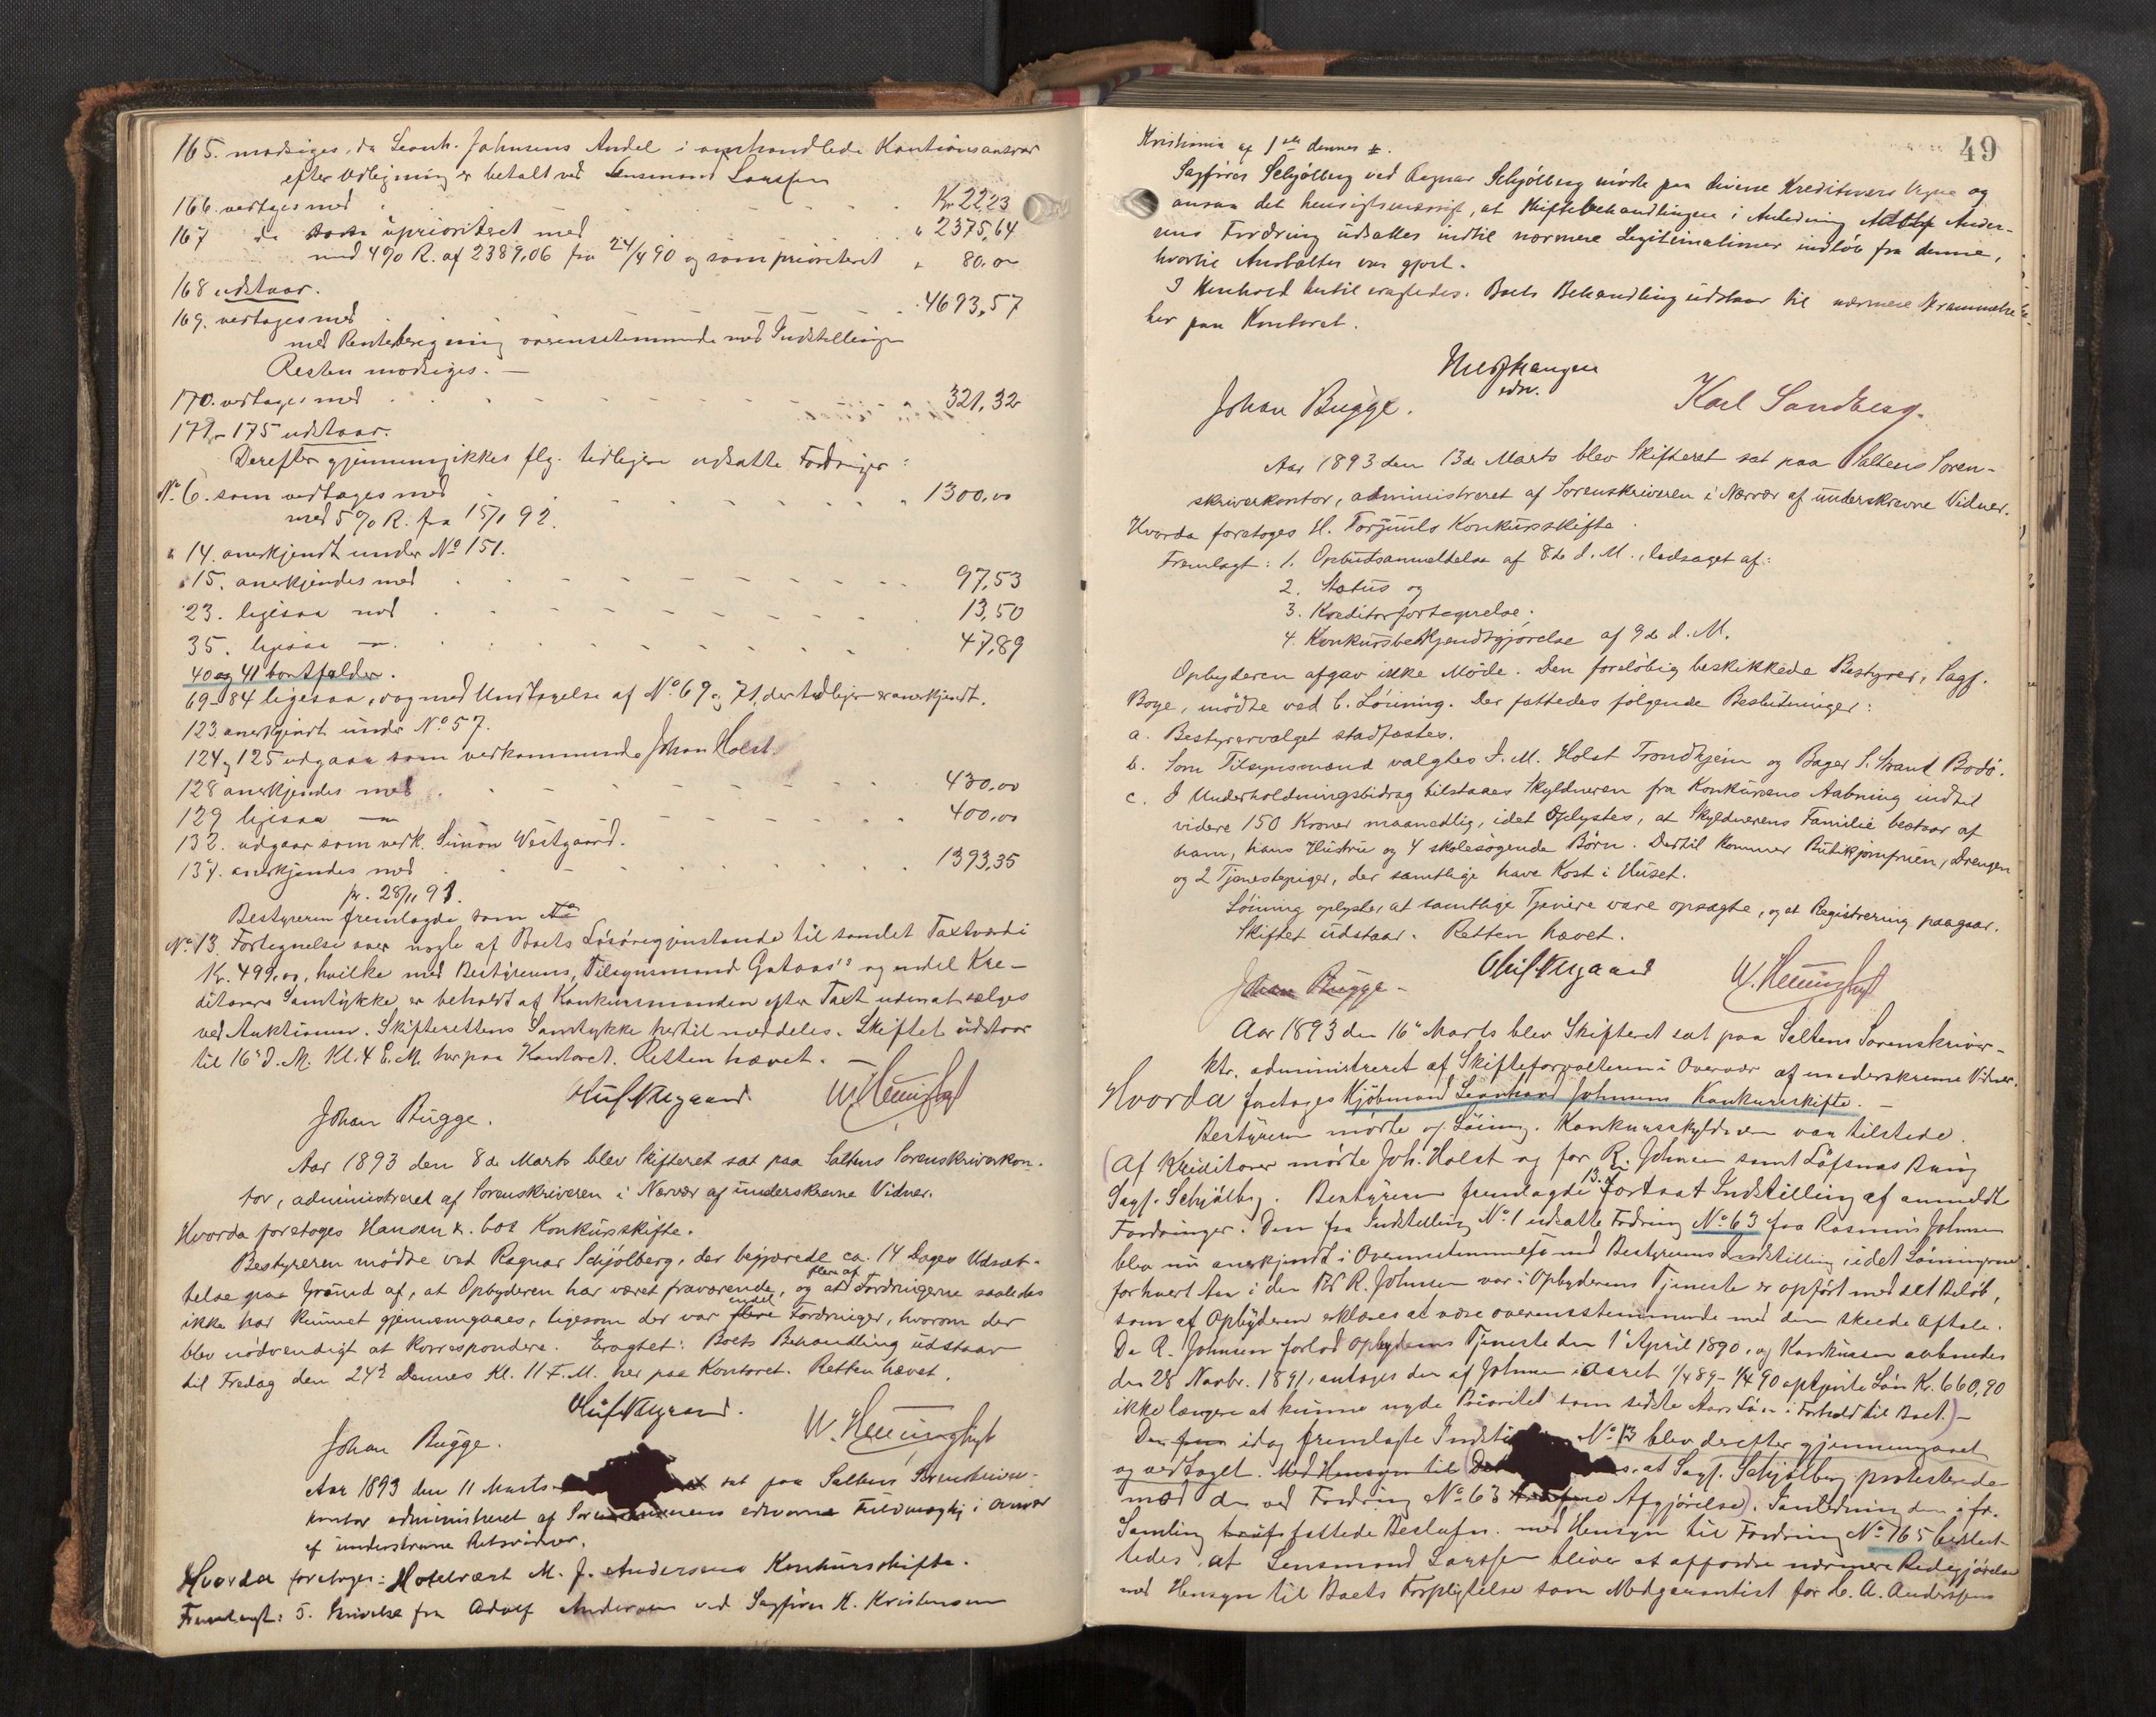 165. modsiges, da Leonh. Johnsens Andel i omhandlede Kautionsansvar
efter Udligning er betalt ved Lensmand Larssen
166. vedtages med Kr. 22,23
167 do som uprioriteret med " 2375,64
med 4% R. af 2389,06 fra 24/4 90 og som prioriteret " 80,00
168 udstaar.
169. vedtages med 4693,57
med Renteberegning overensstemmende med Indstillingen
Resten modsiges. —
170. vedtages med 321,32
171-175 udstaar.
Derefter gjennemgikkes flg. tidligere udsatte Fordringer:
No 6. som vedtages med 1300,00
med 5% R. fra 15/1 92.
" 14. anerkjendt under No 151.
" 15. anerkjendes med 97,53
23. ligesaa med 13,50
35. ligesaa — 47,89
40 og 41 bortfalder.
69-84 ligesaa, dog med Undtagelse af No 69 og 71, der tidligere er anerkjendt.
123 anerkjendt under No 57.
124 og 125 udgaar som vedkommende Johan Holst.
128 anerkjendes med 430,00
129 ligesaa — 400,00
132. udgaar som vedk. Simon Westgaard.
134. anerkjendes med 1393,35
pr. 28/11 91.
Bestyreren fremlagde som No
No 13. Fortegnelse over nogle af Boets Løsøregjenstande til samlet Taxtværdi
Kr. 499,00, hvilke med Bestyrerens, Tilsynsmand Gataas's og endel Kre-
ditorers Samtykke er beholdt af Konkursmanden efter Taxt uden at sælges
ved Auktionen. Skifterettens Samtykke hertil meddeles. Skiftet udstaar
til 16de d. M. Kl. 4 E.M. her paa Kontoret. Retten hævet. —
Johan Bugge.
Aar 1893 den 8de Marts blev Skifteret sat paa Saltens Sorenskriverkon-
tor, administreret af Sorenskriveren i Nærvær af underskrevne Vidner.
Hvorda foretoges Hansen & Cos Konkursskifte.
Bestyreren mødte ved Ragnar Schjølberg, der begjærede ca. 14 Dages Udsæt-
telse paa Grund af, at Opbyderen har været fraværende, og at flere af Fordringerne saaledes
ikke har kunnet gjennemgaaes, ligesom der var endel flere Fordringer, hvorom der
blev nødvendigt at korrespondere. Eragtet: Boets Behandling udstaar
til Fredag den 24de Dennes Kl. 11 F.M. her paa Kontoret. Retten hævet.
Johan Bugge.
Aar 1893 den 11 Marts sat paa Saltens Sorenskriver-
kontor administreret af edsvorne Fuldmægtig i Overvær
af underskrevne Retsvidner.
Hvorda foretoges: Hotelvært M. J. Andersens Konkursskifte.
Fremlagt: 5. Skrivelse fra Adolf Andersen ved Sagfører K. Kristensen
49
Kristiania af 1ste dennes.
Sagfører Schjølberg ved Ragnar Schjølberg mødte paa diverse Kreditorers Vegne og
ansaa det hensigtsmæssigt, at Skiftebehandlingen i Anledning Adolf Ander-
sens Fordring udsattes indtil nærmere Legitimationer indløb fra denne,
hvortil Anstalter var gjort.
I Henhold hertil eragtedes: Boets Behandling udstaar til nærmere Berammelse
her paa Kontoret.
edsv.
Johan Bugge. Karl Sandberg.
Aar 1893 den 13de Marts blev Skifteret sat paa Saltens Soren-
skriverkontor, administreret af Sorenskriveren i Nærvær af underskrevne Vidner.
Hvorda foretoges H. Torjuuls Konkursskifte.
Fremlagt: 1. Opbudsanmeldelse af 8de d. M., ledsaget af:
2. Status og
3. Kreditorfortegnelse;
4. Konkursbekjendtgjørelse af 9de d. M.
Opbyderen afgav ikke Møde. Den foreløbig beskikkede Bestyrer, Sagf.
Boye, mødte ved C. Løining. Der fattedes følgende Beslutninger:
a. Bestyrervalget stadfæstes.
b. Som Tilsynsmænd valgtes J. M. Holst Trondhjem og Bager S. Strand Bodø.
c. I Underholdningsbidrag tilstaaes Skyldneren fra Konkursens Aabning indtil
videre 150 Kroner maanedlig, idet oplystes, at Skyldnerens Familie bestaar af
ham, hans Hustru og 4 skolesøgende Børn. Dertil kommer Butikjomfruen, Drengen
og 2 Tjenestepiger, der samtlige have Kost i Huset.
Løining oplyste, at samtlige Tjenere vare opsagte, og at Registrering paagaar.
Skiftet udstaar. Retten hævet.
Johan Bugge
Aar 1893 den 16de Marts blev Skifteret sat paa Saltens Sorenskriver-
ktr. administreret af Skifteforvalteren i Overvær af underskrevne Vidner.
Hvorda foretoges Kjøbmand Leonhard Johnsens Konkursskifte. —
Bestyreren mødte v. Løining. Konkursskyldneren var tilstede.
(Af Kreditorer mødte Joh. Holst og for R. Johnsen samt Løfsnæs Brug
Sagf. Schjølberg. Bestyreren fremlagde 13. Fortsat Indstilling af anmeldte
Fordringer. Den fra Indstilling No 1 udsatte Fordring No 63 fra Rasmus Johnsen
blev nu anerkjendt i Overensstemmelse med Bestyrerens Indstilling, idet Lønningerne
for hvert Aar i den Tid R. Johnsen var i Opbyderens Tjeneste er opført med det Beløb,
som af Opbyderen erklæres at være overensstemmende med den skeede Aftale.
Da R. Johnsen forlod Opbyderens Tjeneste den 1ste April 1890, og Konkursen aabnedes
den 28 Novbr. 1891, antages den af Johnsen i Aaret 1/4 89 - 1/4 90 optjente Løn Kr. 660,90
ikke længere at kunne nyde Prioritet som sidste Aars Løn i Forhold til Boet.) —
Den idag fremlagte No 13 blev derefter gjennemgaaet
og vedtaget. Med Hensyn til at Sagf. Schjølberg protesterede
mod den ved Fordring No 63 Afgjørelse). I Anledning den i fr.
Samling fattede Beslutn. med Hensyn til Fordring No 165 beslut-
tedes, at Lensmand Larssen bliver at affordre nærmere Redegjørelse
med Hensyn til Boets Forpligtelse som Medgarantist for C. A. Anderssens